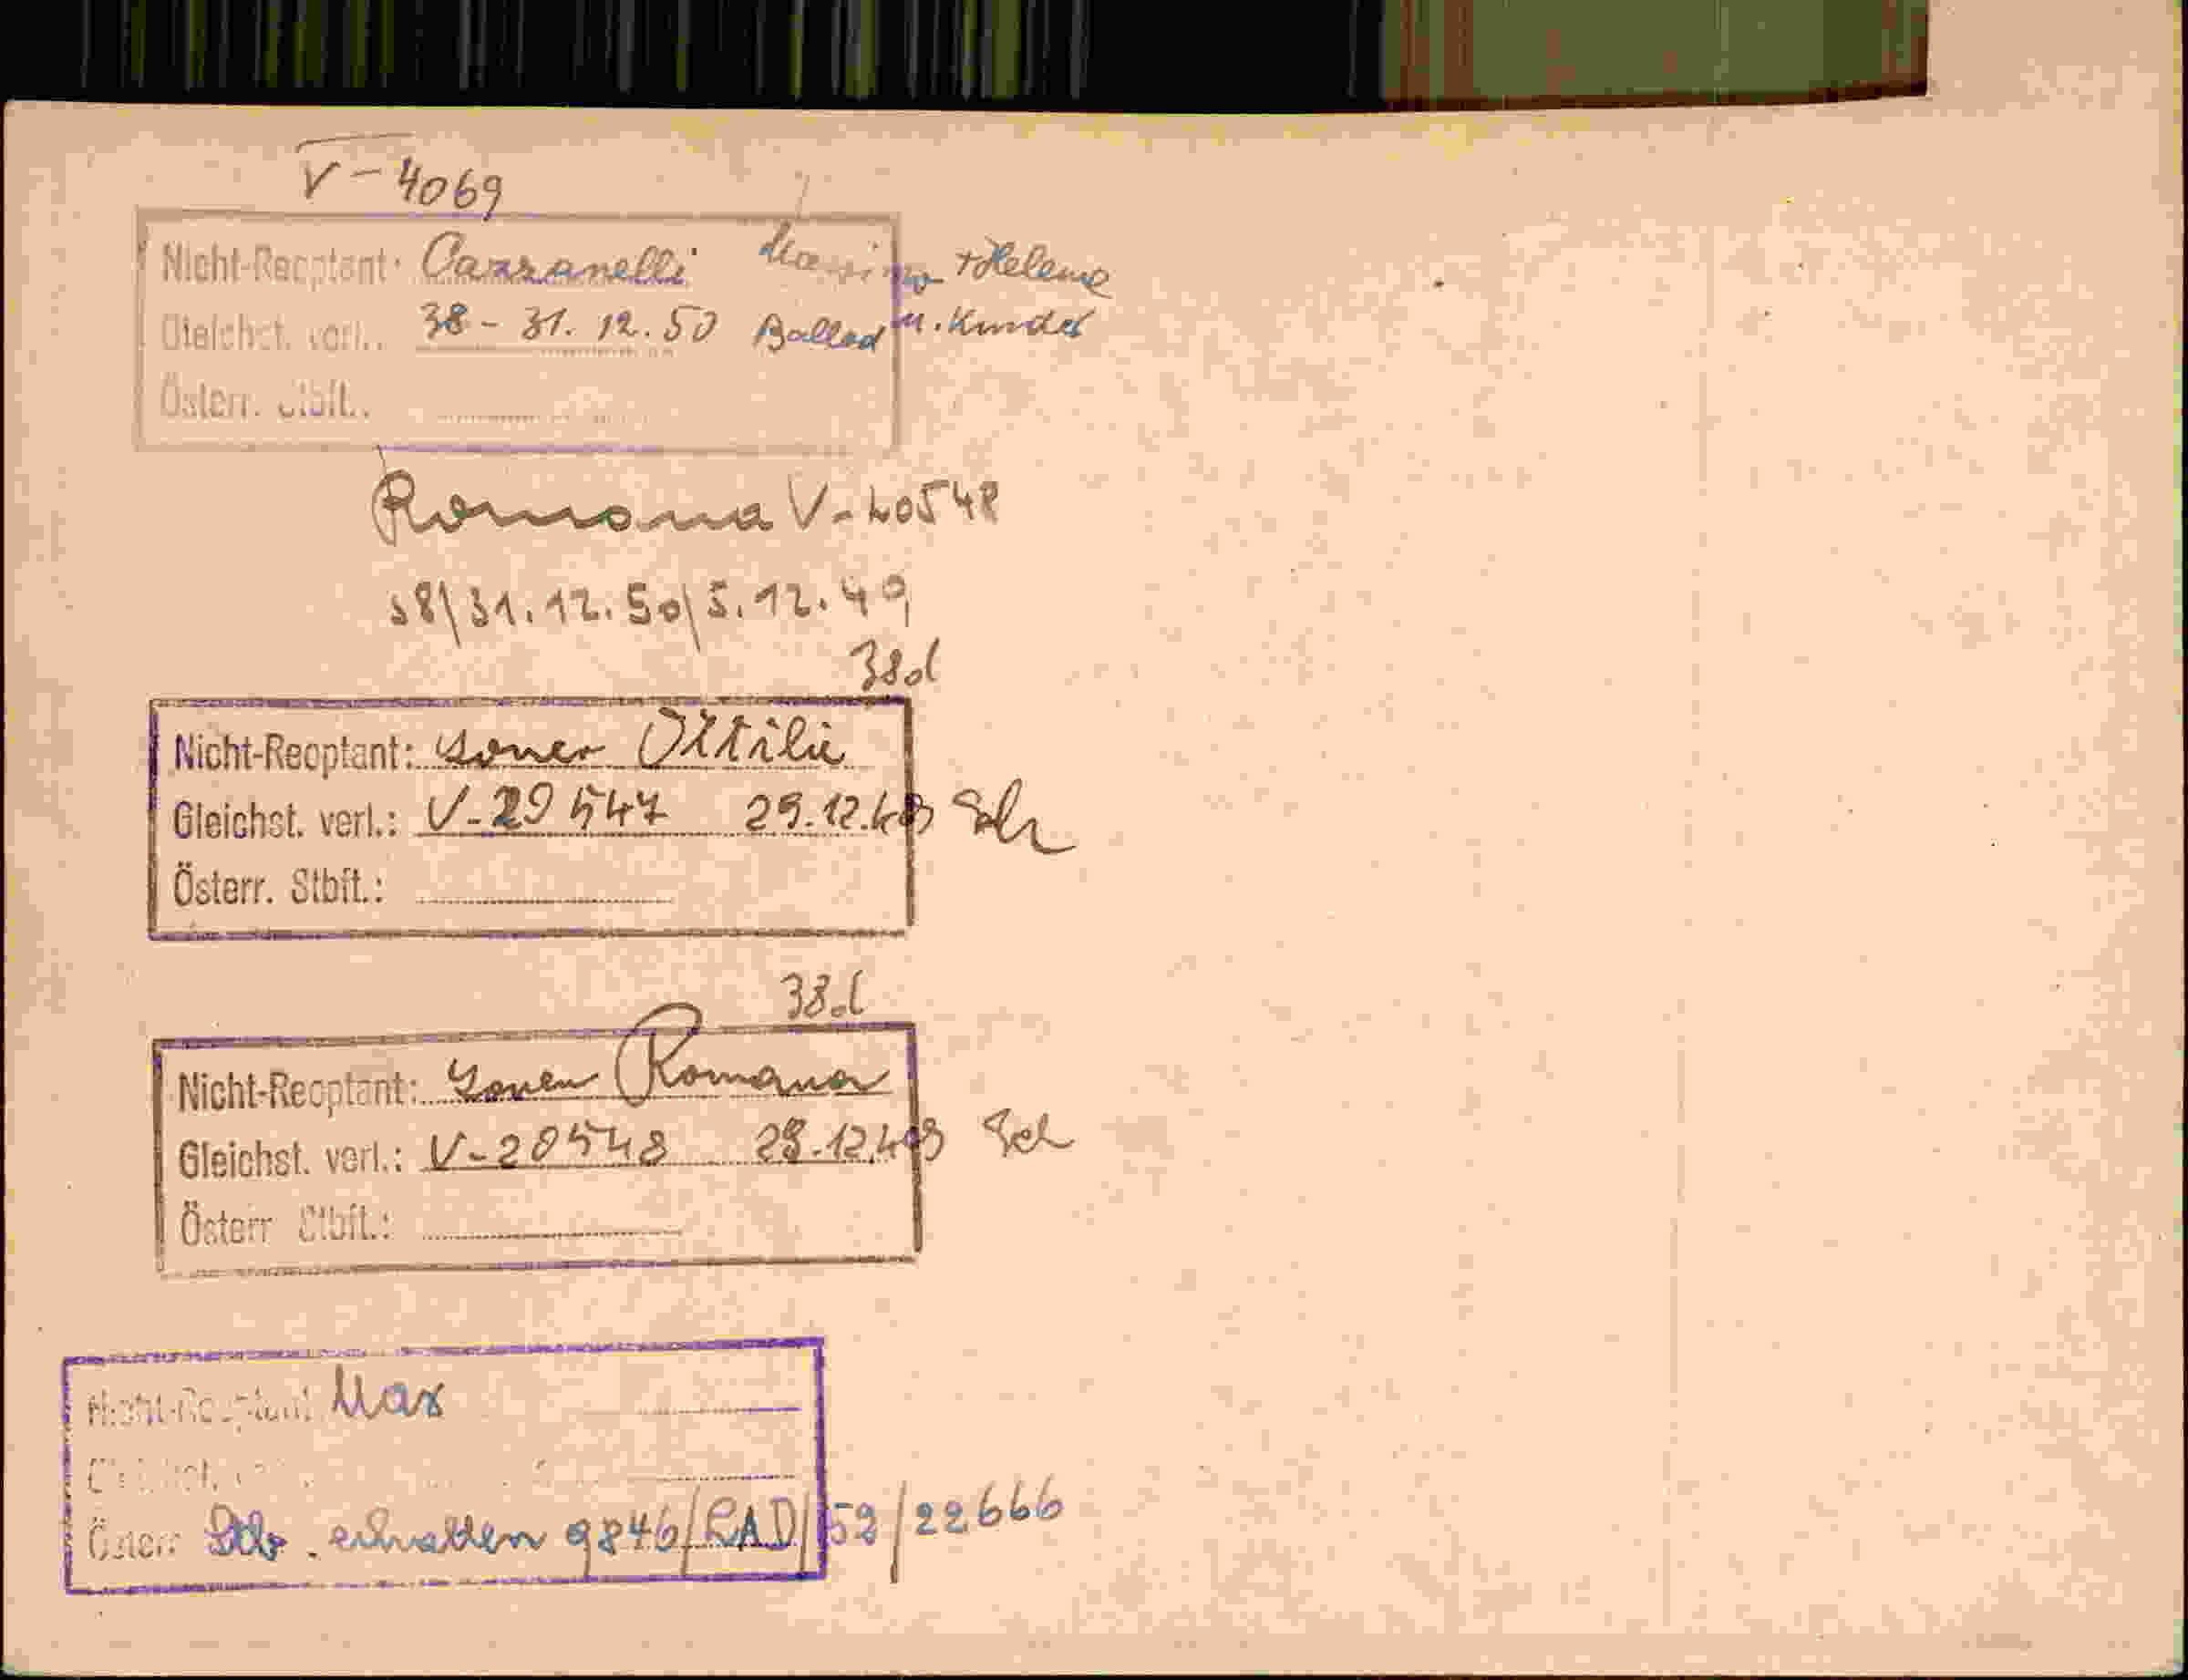 V-4069
Nicht-Reoptant: Cazzanelli Massimo + Helene
Gleichst. verl.: 38 - 31. 12. 50 Ballad u. Kinder
Österr. Stbft.:
Romana V-20548
38\31.12.50\5.12.49
38d
Nicht-Reoptant: Ottilie
Gleichst. verl.: V-20547 29.12.49 Sch
Österr. Stbft.:
38d
Nicht-Reoptant: Romana
Gleichst. verl.: V-20548 29.12.49 Sch
Österr. Stbft.:
Nicht-Reoptant: Max
Gleichst. verl.:
Österr. Stb. erhalten 9846/LAD/52/22666